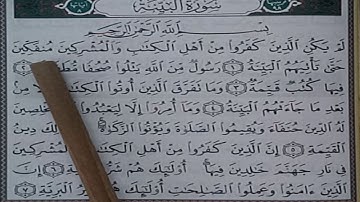 سُورَةُ الْبَيِّنَةِ
بِسْمِ اللَّهِ الرَّحْمَٰنِ الرَّحِيمِ
لَمْ يَكُنِ الَّذِينَ كَفَرُوا مِنْ أَهْلِ الْكِتَابِ وَالْمُشْرِكِينَ مُنْفَكِّينَ
حَتَّىٰ تَأْتِيَهُمُ الْبَيِّنَةُ رَسُولٌ مِنَ اللَّهِ يَتْلُو صُحُفًا مُطَهَّرَةً
فِيهَا كُتُبٌ قَيِّمَةٌ وَمَا تَفَرَّقَ الَّذِينَ أُوتُوا الْكِتَابَ إِلَّا مِنْ
بَعْدِ مَا جَاءَتْهُمُ الْبَيِّنَةُ وَمَا أُمِرُوا إِلَّا لِيَعْبُدُوا مُخْلِصِينَ
لَهُ الدِّينَ حُنَفَاءَ وَيُقِيمُوا الصَّلَاةَ وَيُؤْتُوا الزَّكَاةَ دِينُ
الْقَيِّمَةِ إِنَّ الَّذِينَ كَفَرُوا مِنْ أَهْلِ الْكِتَابِ وَالْمُشْرِكِينَ
فِي نَارِ جَهَنَّمَ خَالِدِينَ فِيهَا أُولَٰئِكَ هُمْ شَرُّ
الَّذِينَ آمَنُوا وَعَمِلُوا الصَّالِحَاتِ أُولَٰئِكَ هُمْ خَيْرُ الْبَرِيَّةِ